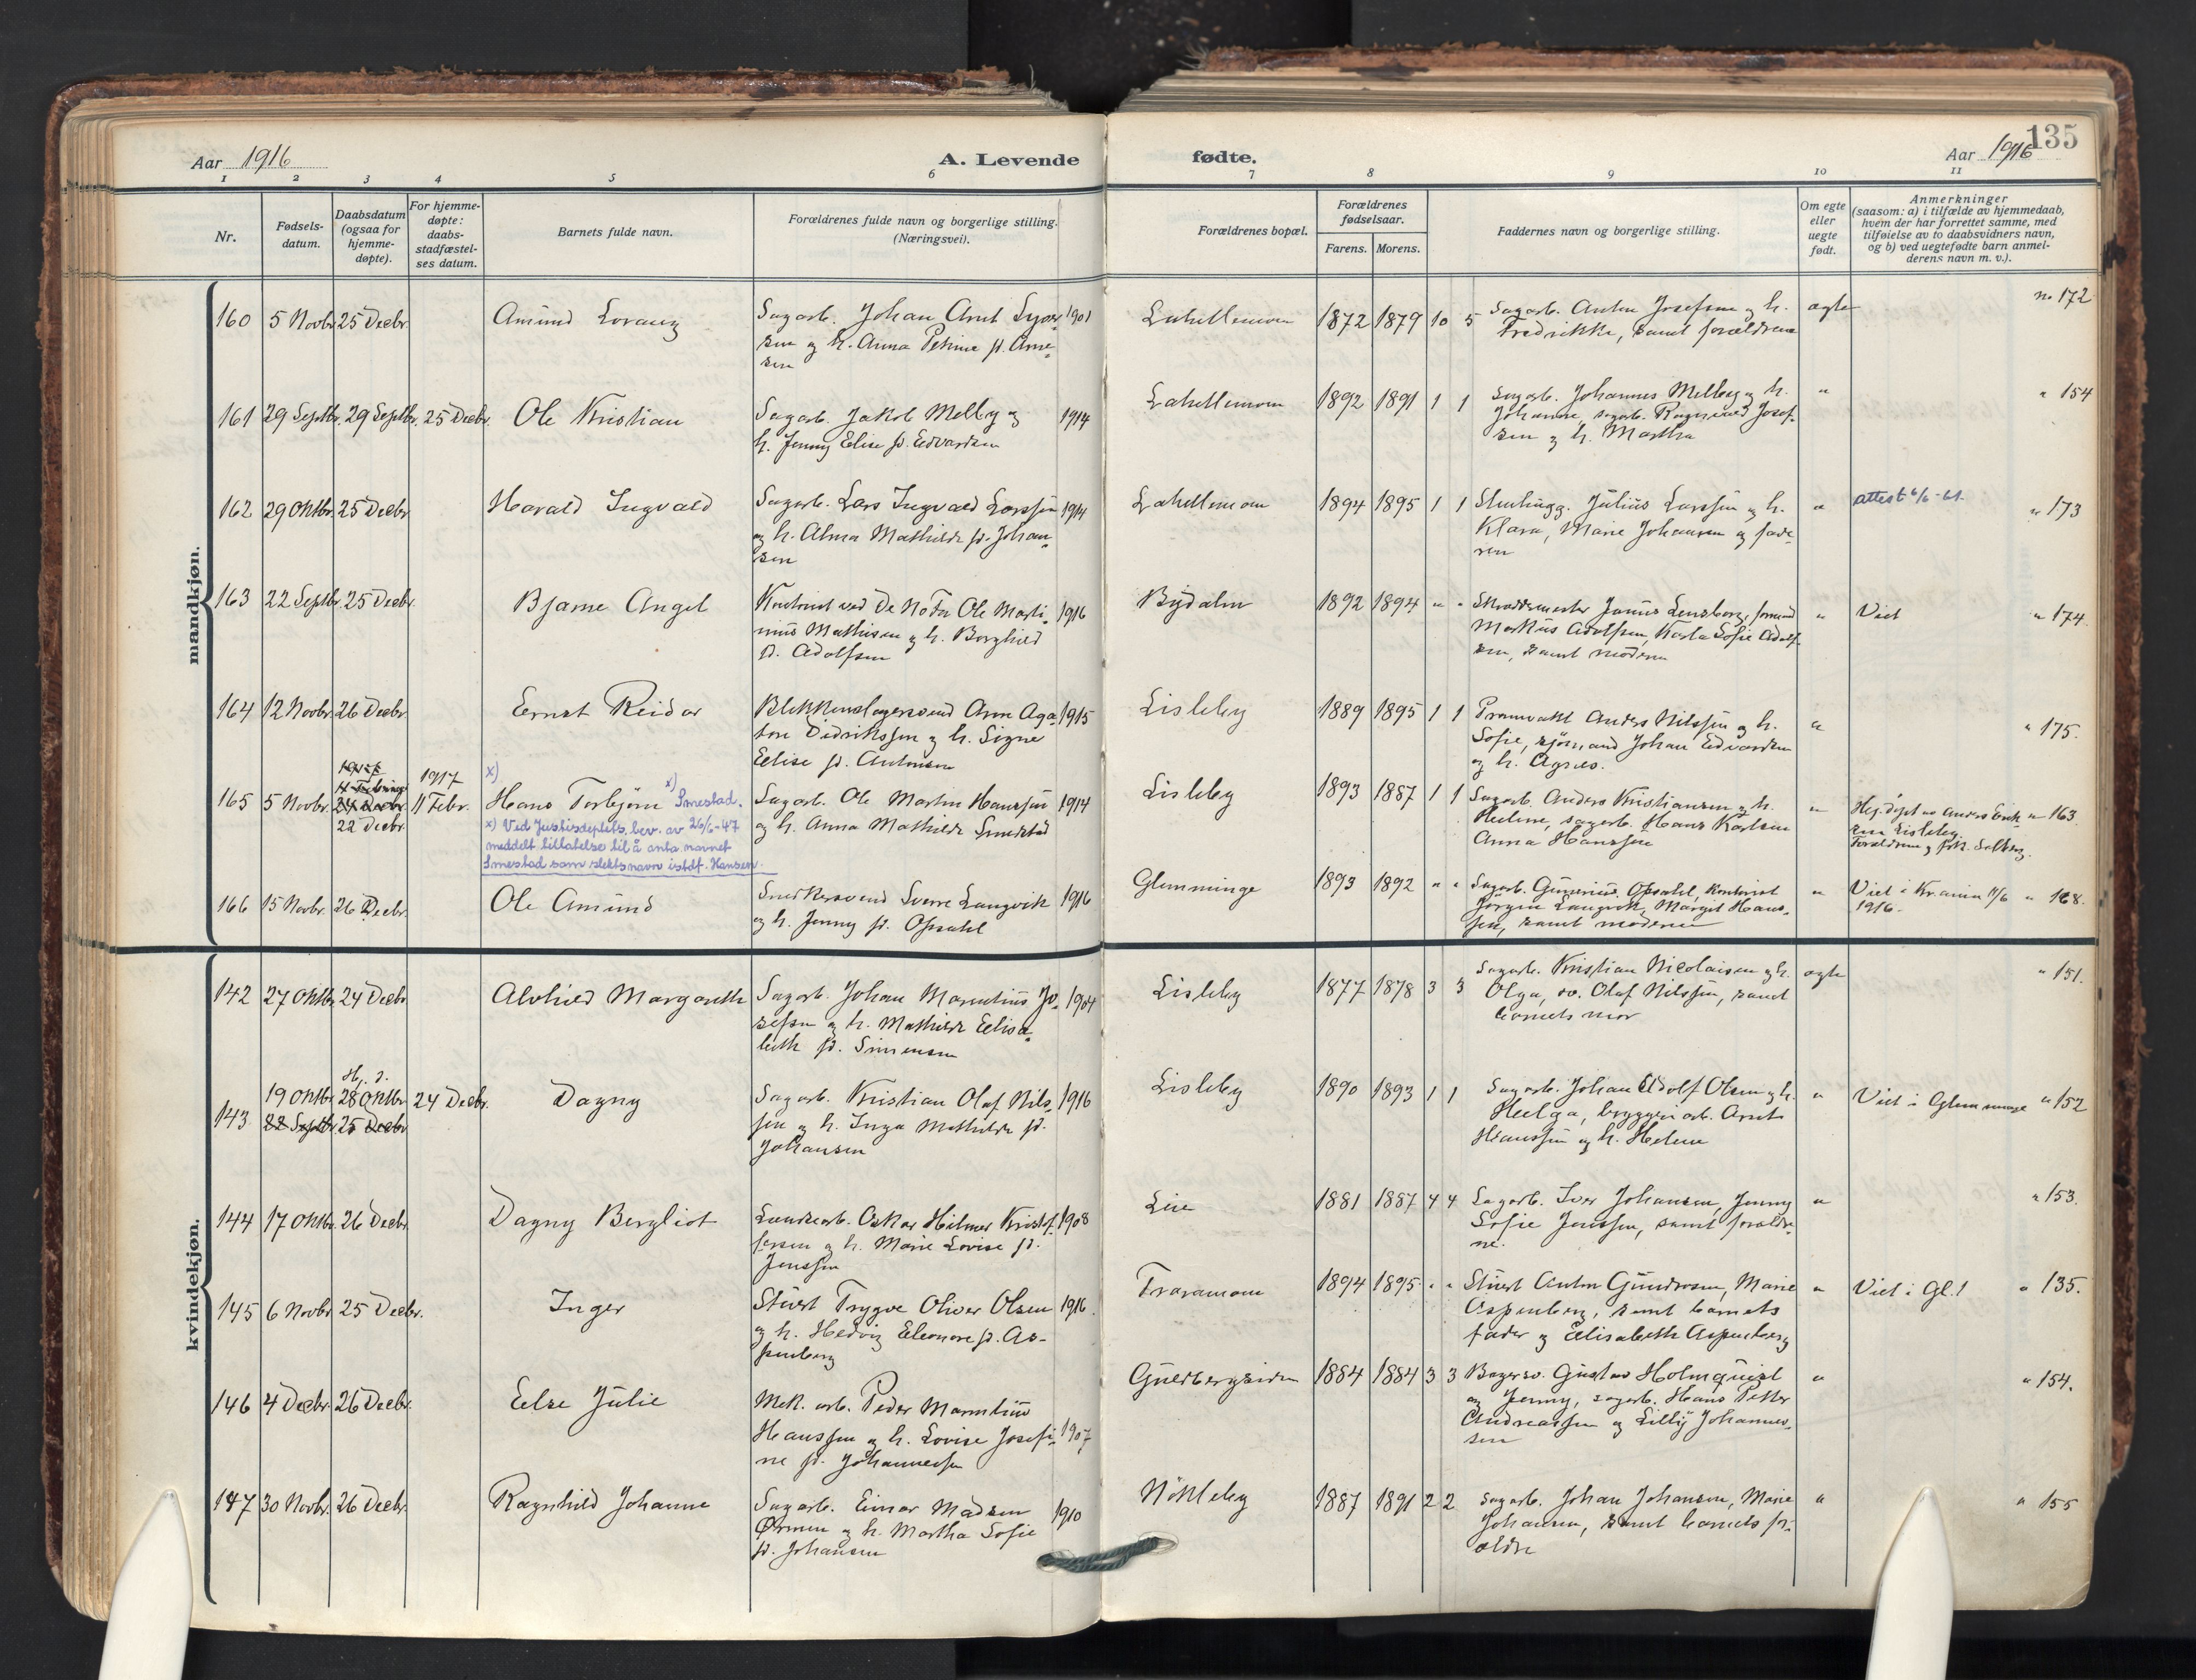 135
Aar 1916
A. Levende
fødte.
Aar 1916
1 2 3 4 5 6 7 8 9 10 11
Nr.
Fødsels-
datum.
Daabsdatum
(ogsaa for
hjemme-
døpte).
For hjemme-
døpte:
daabs-
stadfæstel-
ses datum.
Barnets fulde navn.
Forældrenes fulde navn og borgerlige stilling.
(Næringsvei).
Forældrenes bopæl.
Forældrenes
fødselsaar.
Farens. Morens.
Faddernes navn og borgerlige stilling.
Om egte
eller
uegte
født.
Anmerkninger
(saasom: a) i tilfælde av hjemmedaab,
hvem der har forrettet samme, med
tilføielse av to daabsvidners navn,
og b) ved uegtefødte barn anmel-
derens navn m. v.).
mandkjøn.
160 5 Novbr. 25 Decbr.
Amund Lorang
Sagarb. Johan Arnt
sen og h. Anna Petrine f. Arne-
sen
1901
1872 1879 10 5
Sagarb. Anton Josefsen og h.
Fredrikke, samt forældrene
egte
no 172
161 29 Septbr. 29 Septbr. 25 Decbr.
Ole Kristian
Sagarb. Jakob Melby og
h. Jenny Elise f. Edvardsen
1914
1892 1891 1 1
Sagarb. Johannes Melby og h.
Johanne, sagarb. Ragnvald Josef-
sen og h. Martha
" " 154
162 29 Oktbr. 25 Decbr.
Harald Ingvald
Sagarb. Lars Ingvald Larssen
og h. Alma Mathilde f. Johan-
sen
1914
1894 1895 1 1
Stenhugg. Julius Larssen og h.
Klara, Marie Johansen og fade-
ren
"
attest 6/6-61.
" 173
163 22 Septbr. 25 Decbr.
Bjarne Angel
Kontorist ved De No Fa Ole Marti-
nius Mathisen og h. Borghild
f. Adolfsen
1916
Bydalen
1892 1894 " "
Markus Adolfsen, Karla Sofie Adolf-
sen, samt moderen
"
Viet
" 174.
164 12 Novbr. 26 Decbr.
Ernst Reidar
Blikkenslagersvend Arne Aga-
ton Didrikssen og h. Signe
Elise f. Antonsen
1915
Lisleby
1889 1895 1 1
Pramvakt Anders Nilssen og h.
Sofie, sjømand Johan Edvardsen
og h. Agnes.
" " 175.
165 5 Novbr.
22 Decbr.
1917
11 Febr.
x)
Hans Torbjørn x) Smestad.
x) Ved Justisdeptets bev. av 26/6-47
meddelt tillatelse til å anta navnet
Smestad som slektsnavn istdf. Hansen.
Sagarb. Ole Martin Hanssen
og h. Anna Mathilde Smedstad
1914
Lisleby
1893 1887 1 1
Sagarb. Anders Kristiansen og h.
Helene, sagarb. Hans Karlsen
Anna Hanssen
"
Hj. døpt av Anders Erik-
sen Lisleby.
Forældrene og frk. Solberg.
" 163.
166 15 Novbr. 26 Decbr.
Ole Amund
Snekkersvend Sverre Langvik
og h. Jenny f. Opsahl
1916
Glemminge
1893 1892 " "
Sagarb. Gunerius Opsahl, kontorist
Jørgen Langvik, Margit Hans-
sen, samt moderen
"
Viet i Kr.ania 11/6
1916.
" 168.
kvindekjøn.
142 27 Oktbr. 24 Decbr.
Alvhild Margareth
Sagarb. Johan Marentius Jo-
sefsen og h. Mathilde Elisa-
beth f. Simensen
1904
Lisleby
1877 1878 3 3
Sagarb. Kristian Nicolaisen og h.
Olga, sv. Olaf Nilssen, samt
barnets mor
egte
" 151.
143
19 Oktbr.
22 Septbr.
Hj. d.
28 Oktbr.
25 Decbr.
24 Decbr.
Dagny
Sagarb. Kristian Olaf Nils-
sen og h. Inga Mathilde f.
Johansen
1916
Lisleby
1890 1893 1 1
Sagarb. Johan Adolf Olsen og h.
Helga, bryggeriarb. Arnt
Hanssen og h. Helene
"
Viet i Glemminge
" 152
144 17 Oktbr. 26 Decbr.
Dagny Bergliot
Oskar Hilmer Kristof-
fersen og h. Marie Lovise f.
Jenssen
1908
Lie
1881 1887 4 4
Sagarb. Iver Johansen, Jenny
Sofie Jenssen, samt forældre-
ne.
" " 153.
145 6 Novbr. 25 Decbr.
Inger
Stuert Trygve Oliver Olsen
og h. Hedvig Eleonore f. As-
penberg
1916.
Traramoen
1894 1895 " "
Stuert Anton Gundersen, Marie
Aspenberg, samt barnets
fader og Elisabeth Aspenberg
"
Viet i Gl.!
" 135.
146 4 Decbr. 26 Decbr.
Else Julie
Mek. arb. Peder Marentius
Hanssen og h. Lovise Josefi-
ne f. Johannessen
1907
Guldbergsiden
1884 1884 3 3
Bagersv. Gustav Holmquist
og Jenny, sagarb. Hans Petter
Andreassen og Lilly Johannes-
sen
" " 154.
147 30 Novbr. 26 Decbr.
Ragnhild Johanne
Sagarb. Einar Madsen
Ørmen og h. Martha Sofie
f. Johansen
1910
Nøkleby
1887 1891 2 2
Sagarb. Johan Johansen, Marie
Johansen, samt barnets for-
ældre
" " 155